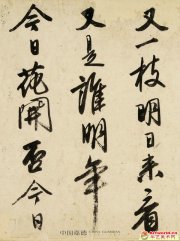 又一枝明日来看
又是誰明年
今日花開否今日
中国嘉德 CHINA GUARDIAN